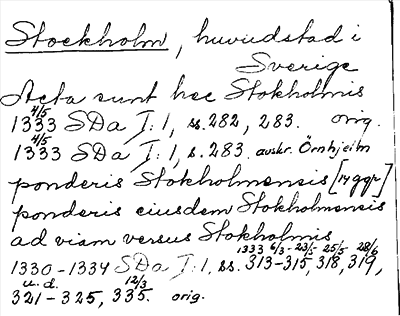 Stockholm, huvudstad i
Sverige
Acta sunt hec Stokholmis
4/5
1333 SDa I:1, ss. 282, 283. orig.
4/5
1333 SDa I:1, s. 283 avskr. Örnhjelm
ponderis Stokholmensis [14 ggr]
ponderis eiusdem Stokholmensis
ad viam versus Stokholmis
1333 6/3 - 23/5 25/5 28/6
1330-1334 SDa I:1, ss. 313-315, 318, 319,
u.d. 12/3
321-325, 335. orig.